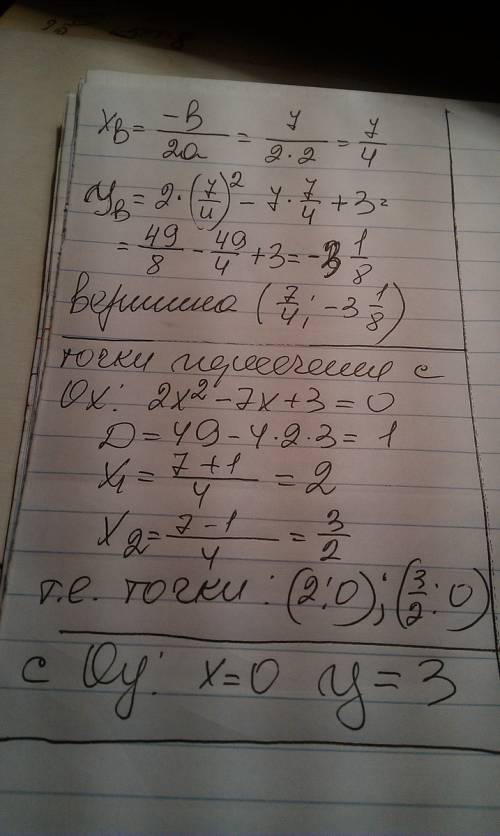 xв = -в/2a = 7/2·2 = 7/4
yв = 2·(7/4)² - 7·7/4 + 3 =
= 49/8 - 49/4 + 3 = -3 1/8
вершина (7/4; -3 1/8)
точки пересечения с
Ох: 2x² - 7x + 3 = 0
D = 49 - 4·2·3 = 1
x₁ = 7+1/4 = 2
x₂ = 7-1/4 = 3/2
т.е. точки: (2;0); (3/2;0)
с Оу: x=0 y=3